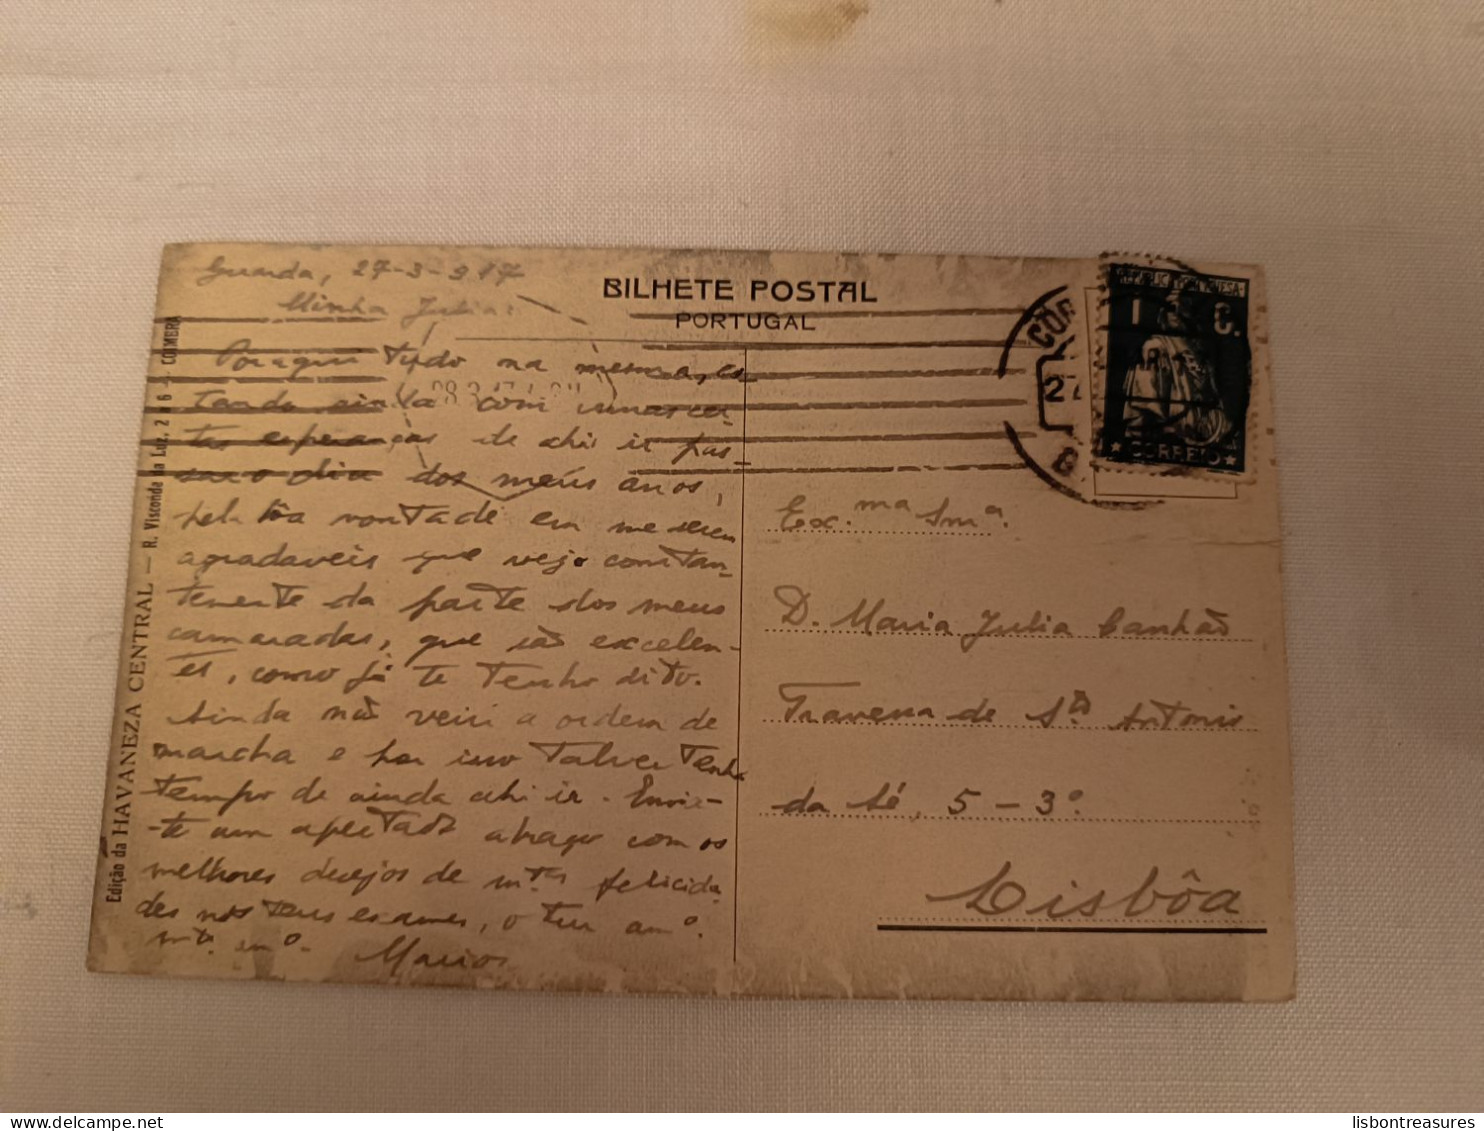 Guarda, 27-3-917
Minha Julia:
Por aqui tudo na mesma, es-
tando ainda com umas cer-
tas esperanças de ahi ir pas-
sar o dia dos meus anos,
pela bôa vontade em me serem
agradaveis que vejo constan-
temente da parte dos meus
camaradas, que são excelen-
tes, como já te tenho dito.
Ainda não veiu a ordem de
marcha e por isso talvez tenha
tempo de ainda ahi ir. Envio-
-te um apertado abraço com os
melhores desejos de m.tas felicida-
des nos teus exames, o teu am.º
m.to am.º
Mario
BILHETE POSTAL
PORTUGAL
REPUBLICA PORTUGUESA
1 C.
CORREIO
COR
27
Ex.ma Sn.ª
D. Maria Julia Canhão
Travessa de S.to Antonio
da Sé, 5-3º
Lisbôa
Edição da HAVANEZA CENTRAL — R. Visconde da Luz, 2 a 6 — COIMBRA
lisbontreasures.com